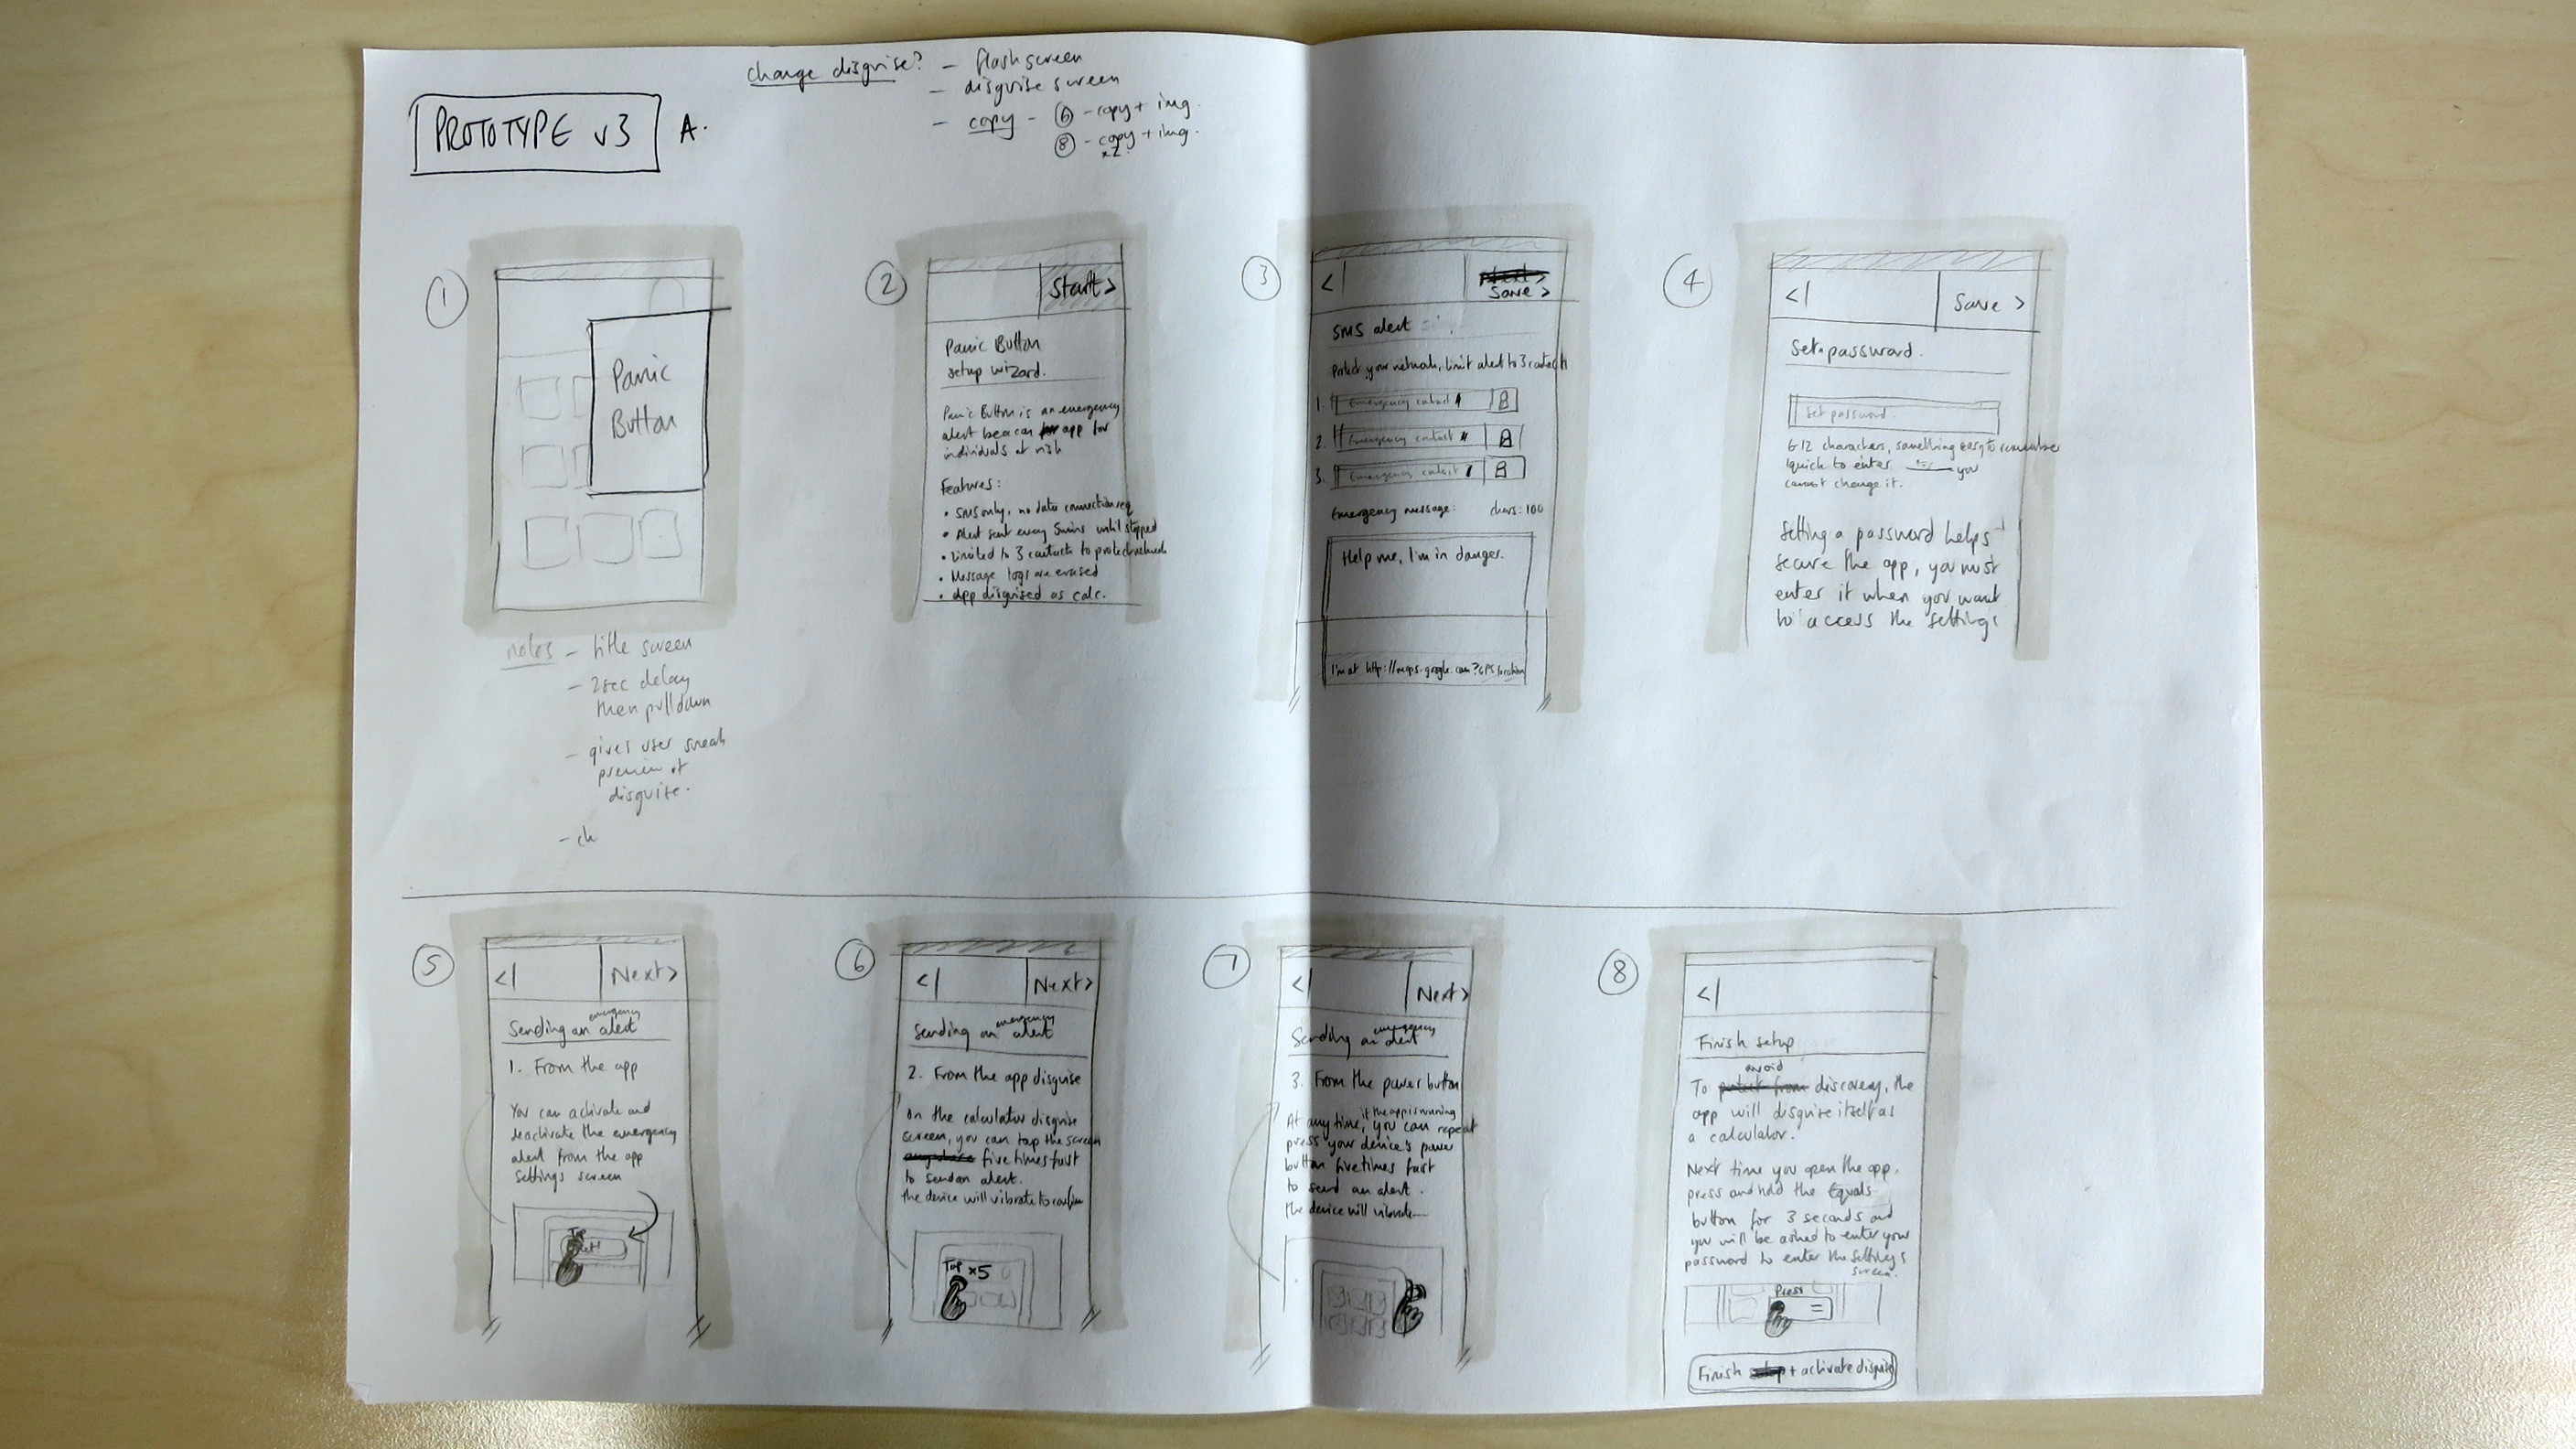 change disguise? - flash screen
- disguise screen
- copy - 6 - copy + img.
8 - copy + img.
x2
PROTOTYPE v3 A.
1
Panic
Button
notes - title screen
- 2sec delay
then pulldown
- gives user sneak
preview of
disguise.
- ch
2
Start >
Panic Button
setup wizard.
Panic Button is an emergency
alert beacon app for
individuals at risk
Features:
• SMS only, no data connection req
• Alert sent every 5mins until stopped
• Limited to 3 contacts to protect network
• Message logs are erased
• App disguised as calc.
3
<
Save >
SMS alert
Protect your network, limit alert to 3 contacts
1. Emergency contact
2. Emergency contact
3. Emergency contact
Emergency message: chars: 100
Help me, I'm in danger.
I'm at http://maps.google.com?GPS location
4
<
Save >
Set password.
Set password
6-12 characters, something easy to remember
quick to enter you
cannot change it.
Setting a password helps
secure the app, you must
enter it when you want
to access the settings
5
<
Next >
Sending an emergency alert
1. From the app
You can activate and
deactivate the emergency
alert from the app
settings screen
Tap
6
<
Next >
Sending an emergency alert
2. From the app disguise
On the calculator disguise
screen, you can tap the screen
anywhere five times fast
to send an alert.
the device will vibrate to confirm
Tap x5
7
<
Next >
Sending an emergency alert
3. From the power button
At any time, if the app is running you can repeat
press your device's power
button five times fast
to send an alert.
the device will vibrate
8
<
Finish setup
To avoid discovery, the
app will disguise itself as
a calculator.
Next time you open the app,
press and hold the Equals
button for 3 seconds and
you will be asked to enter your
password to enter the settings
screen.
Press
=
Finish setup + activate disguise